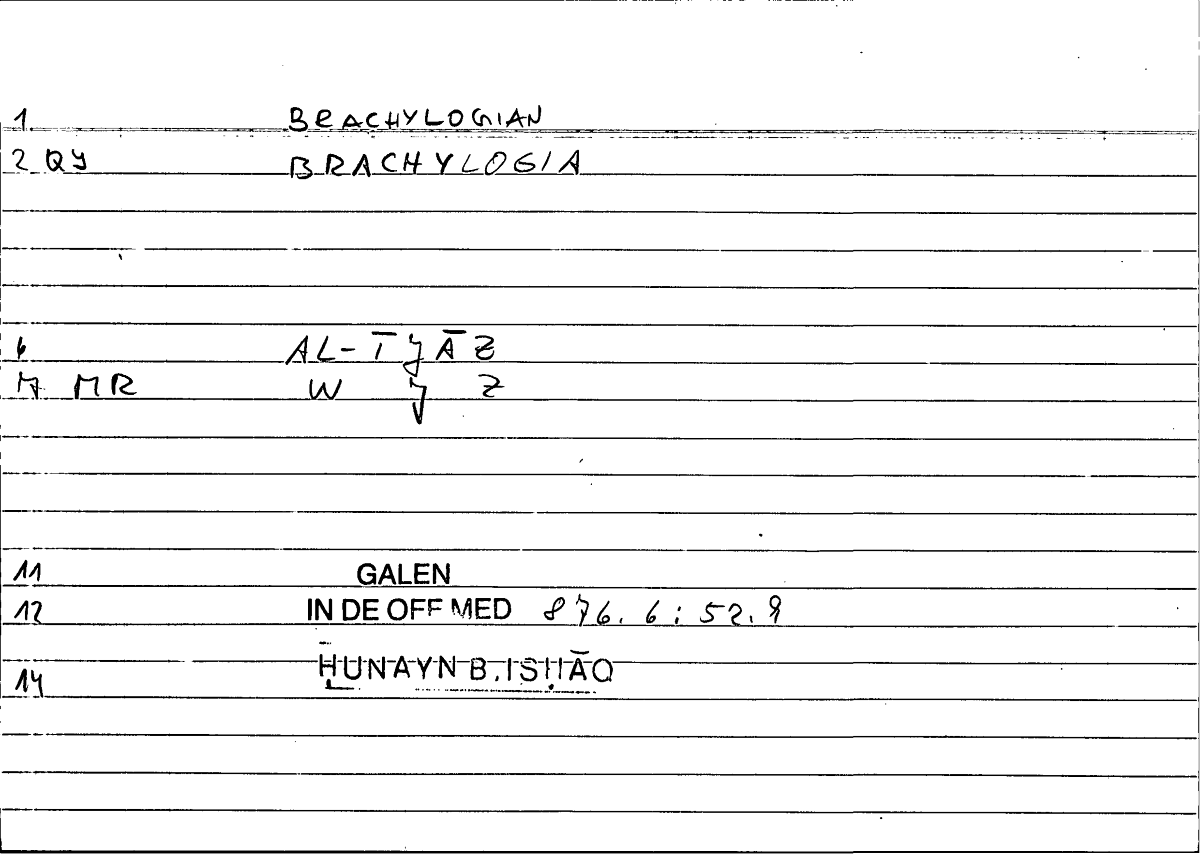 1 BRACHYLOGIAN
2 QY BRACHYLOGIA
6 AL-ĪJĀZ
7 MR W J Z
11 GALEN
12 IN DE OFF MED 876.6:52.9
14 ḤUNAYN B. ISḤĀQ